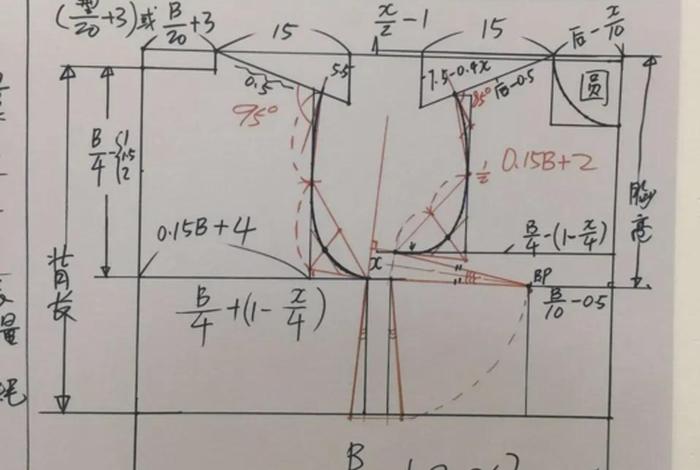 (型/20+3)或 B/20+3
15
x/2-1
15
后-x/10
0.5
5.5
7.5-0.4x
后-0.5
圆
95°
85°
B/4-{1 1.5 2
1/2
0.15B+2
胸高
0.15B+4
B/4-(1-x/4)
背长
x
BP
B/4+(1-x/4)
B/10-0.5
量
B